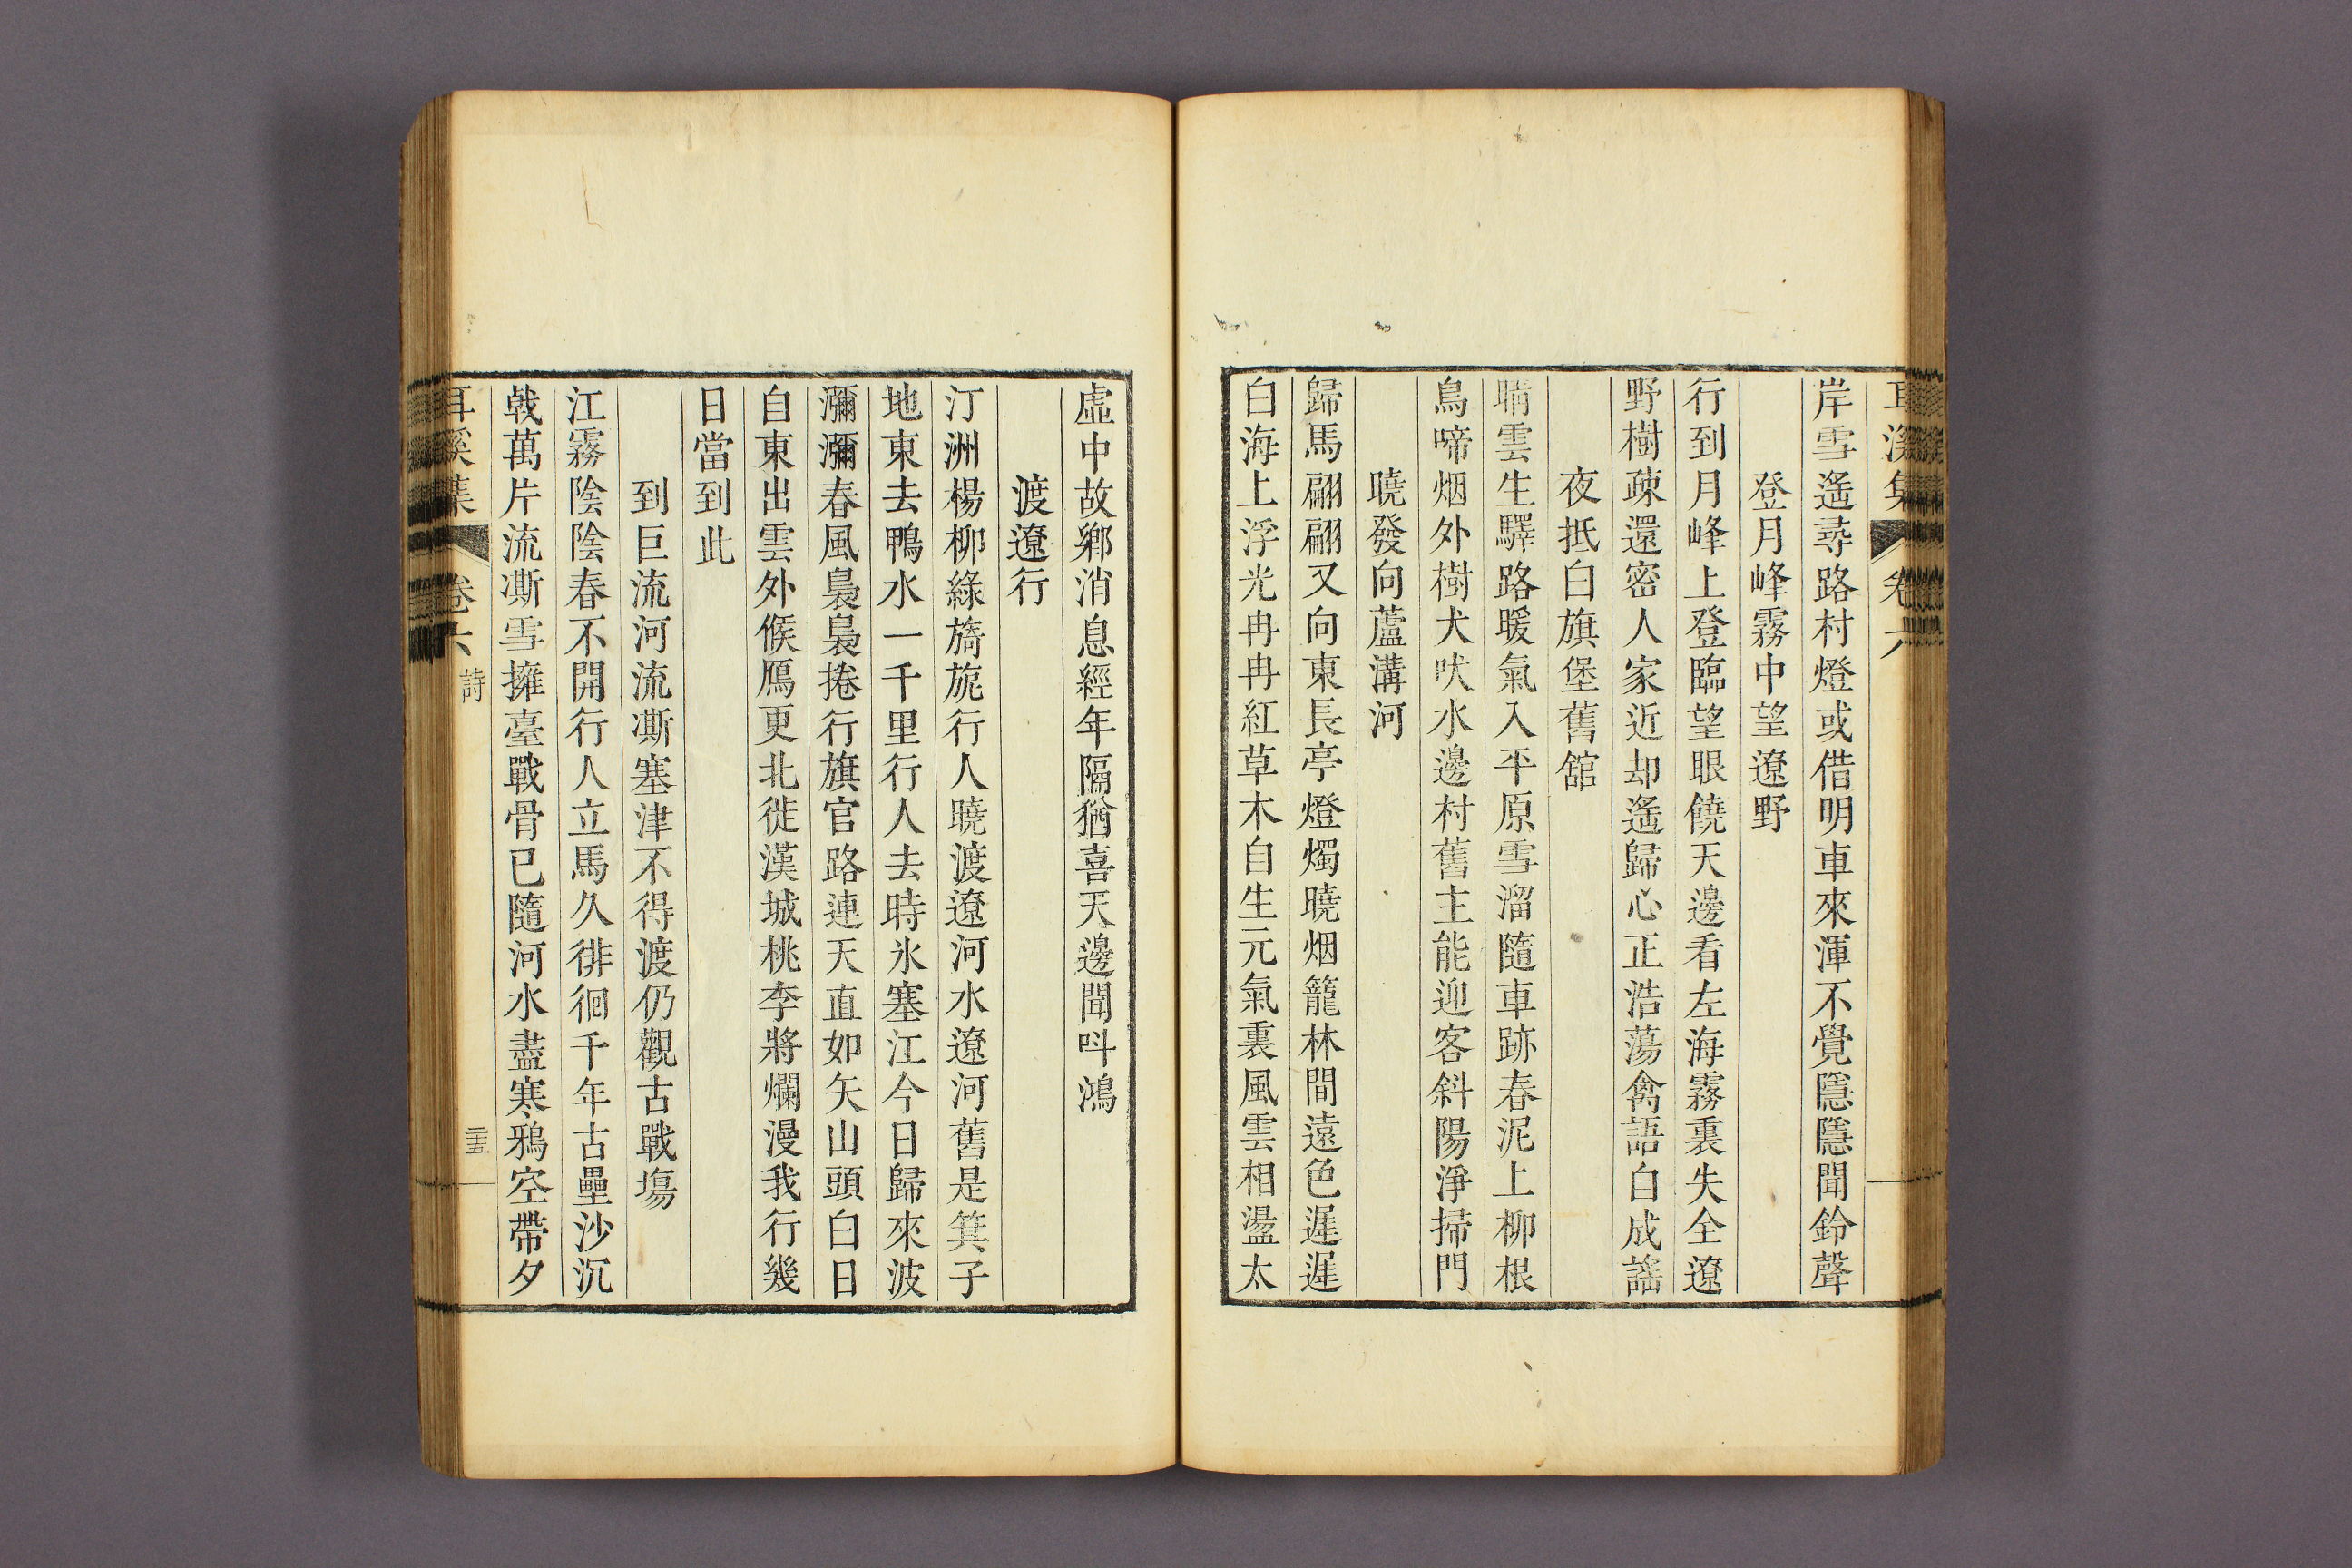 耳溪集 卷六
岸雪遙尋路村燈或借明車來渾不覺隱隱聞鈴聲
登月峰霧中望遼野
行到月峰上登臨望眼饒天邊看左海霧裏失全遼
野樹疎還密人家近却遙歸心正浩蕩禽語自成謠
夜抵白旗堡舊舘
晴雲生驛路暖氣入平原雪溜隨車跡春泥上柳根
鳥啼烟外樹犬吠水邊村舊主能迎客斜陽淨掃門
曉發向蘆溝河
歸馬翩翩又向東長亭燈燭曉烟籠林間遠色遲遲
白海上浮光冉冉紅草木自生元氣裏風雲相盪太
虛中故鄉消息經年隔猶喜天邊聞呌鴻
渡遼行
汀洲楊柳綠旖旎行人曉渡遼河水遼河舊是箕子
地東去鴨水一千里行人去時氷塞江今日歸來波
瀰瀰春風裊裊捲行旗官路連天直如矢山頭白日
自東出雲外候鴈更北徙漢城桃李將爛漫我行幾
日當到此
到巨流河流澌塞津不得渡仍觀古戰塲
江霧陰陰春不開行人立馬久徘徊千年古壘沙沉
戟萬片流澌雪擁臺戰骨已隨河水盡寒鴉空帶夕
耳溪集 卷六 詩 二十五